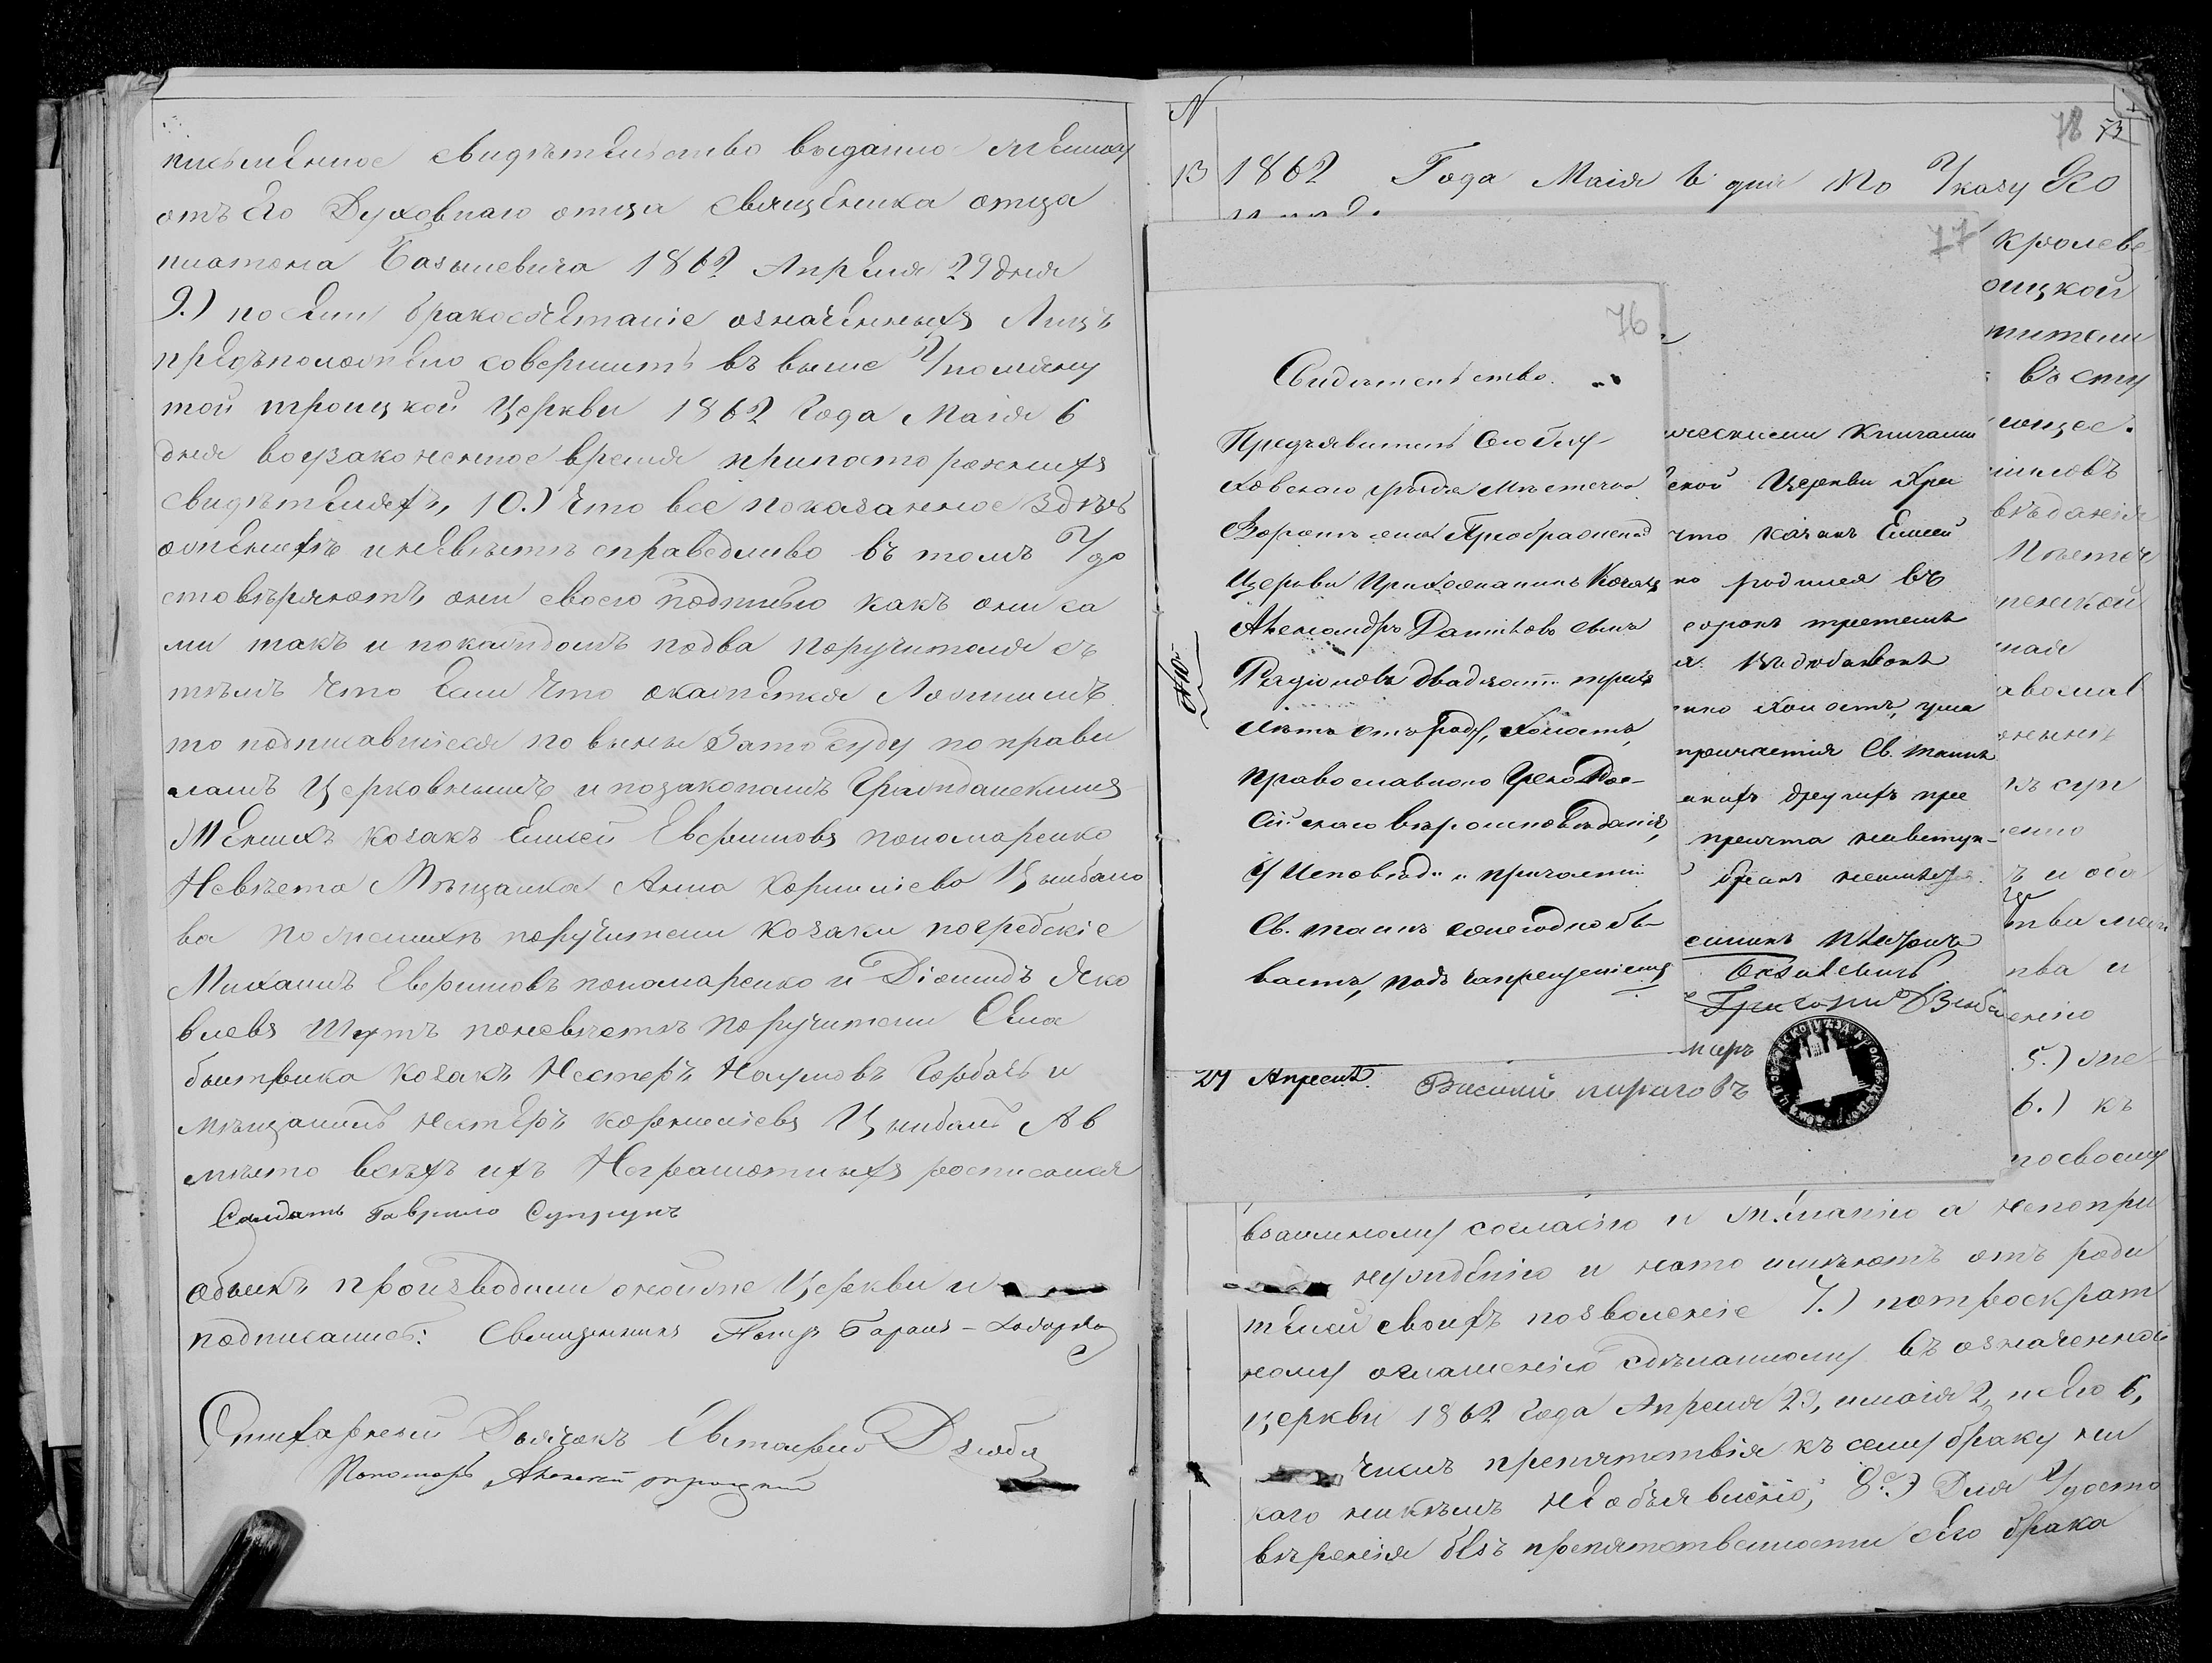 письменное свидѣтельство выданно жениху
отъ его Духовнаго отца священика отца
платона Базилевича 1862 Апреля 29 дня
9.) по сему бракосочетание означенныхъ Лицъ
предъположено совершить въ выше Упомяну
той троицкой Церкви 1862 года Маія 6
дня воузаконенное время припостороннихъ
свидѣтеляхъ, 10.) Что все показанное Здесь
оженихѣ и невѣстѣ справедливо въ томъ Удо
стовѣряютъ они своею подписью какъ они са
ми такъ и покаждомъ подва поручителя съ
тѣмъ что если что окажется Ложнымъ
то подписавшіеся повинны Зато суду поправи
ламъ Церковнымъ и позаконамъ Гражданскимъ
Женихъ козакъ Елисей Евфимовъ пономаренко
Невѣста Мѣщанка Анна Корнилиева Цымбало
ва по женихѣ поручители козаки погребскіе
Михаилъ Евфимовъ пономаренко и Діомидъ Яко
влевъ Шутъ поневѣстѣ поручители Сла
быстрика козакъ Нестеръ Наумовъ Горбачь и
мѣщанинъ нестеръ корнилиевъ Цымбалъ А в
мѣсто всѣхъ ихъ Неграмотныхъ росписался
Салдатъ Гаврило Супрунъ
обыскъ производили оной же Церкви и
подписались: Священникъ Петръ
Стихарный Дьячокъ Евстафий Дзюба
Пономарь Алексей троицкий
N
78 53
13 1862 Года Маія 6 дня По Указу Его
77
кролеве
оицкой
въ сту
76
Свидѣтельство.
Предъявитель сего Глу-
ховскаго уѣзда Мѣстечка
Воронежа Преображенской
Церкви Прихожанинъ Козакъ
Александръ Даниловъ сынъ
Радіоновъ двадцати трехъ
лѣтъ отъ роду, Холостъ,
православного Греко Рос-
сійскаго вѣроисповѣданія,
У Исповѣди и причастія
Св. таинъ ежегодно бы-
ваетъ, подъ запрещеніемъ
ческими книгами
ской Церкви Хри
что козакъ Елисей
но родился въ
сорокъ третьемъ
причастія Св. таинъ
другихъ пре
бракъ
Базилевичъ
27 Апреля. Василий пироговъ
5.) же
6.) къ
посвоему
взаимному согласію и желанію а непопри
нужденію и нато имѣютъ отъ роди
телей своихъ позволеніе 7.) потроекрат
ному оглашенію сдѣланному въ означенной
церкви 1862 года Апреля 29, имаія 2, и 6,
чиселъ препятствія къ сему браку ни
каго никѣмъ необъявлено; 8.) Для Удосто
вѣренія безъ препятственности сего брака